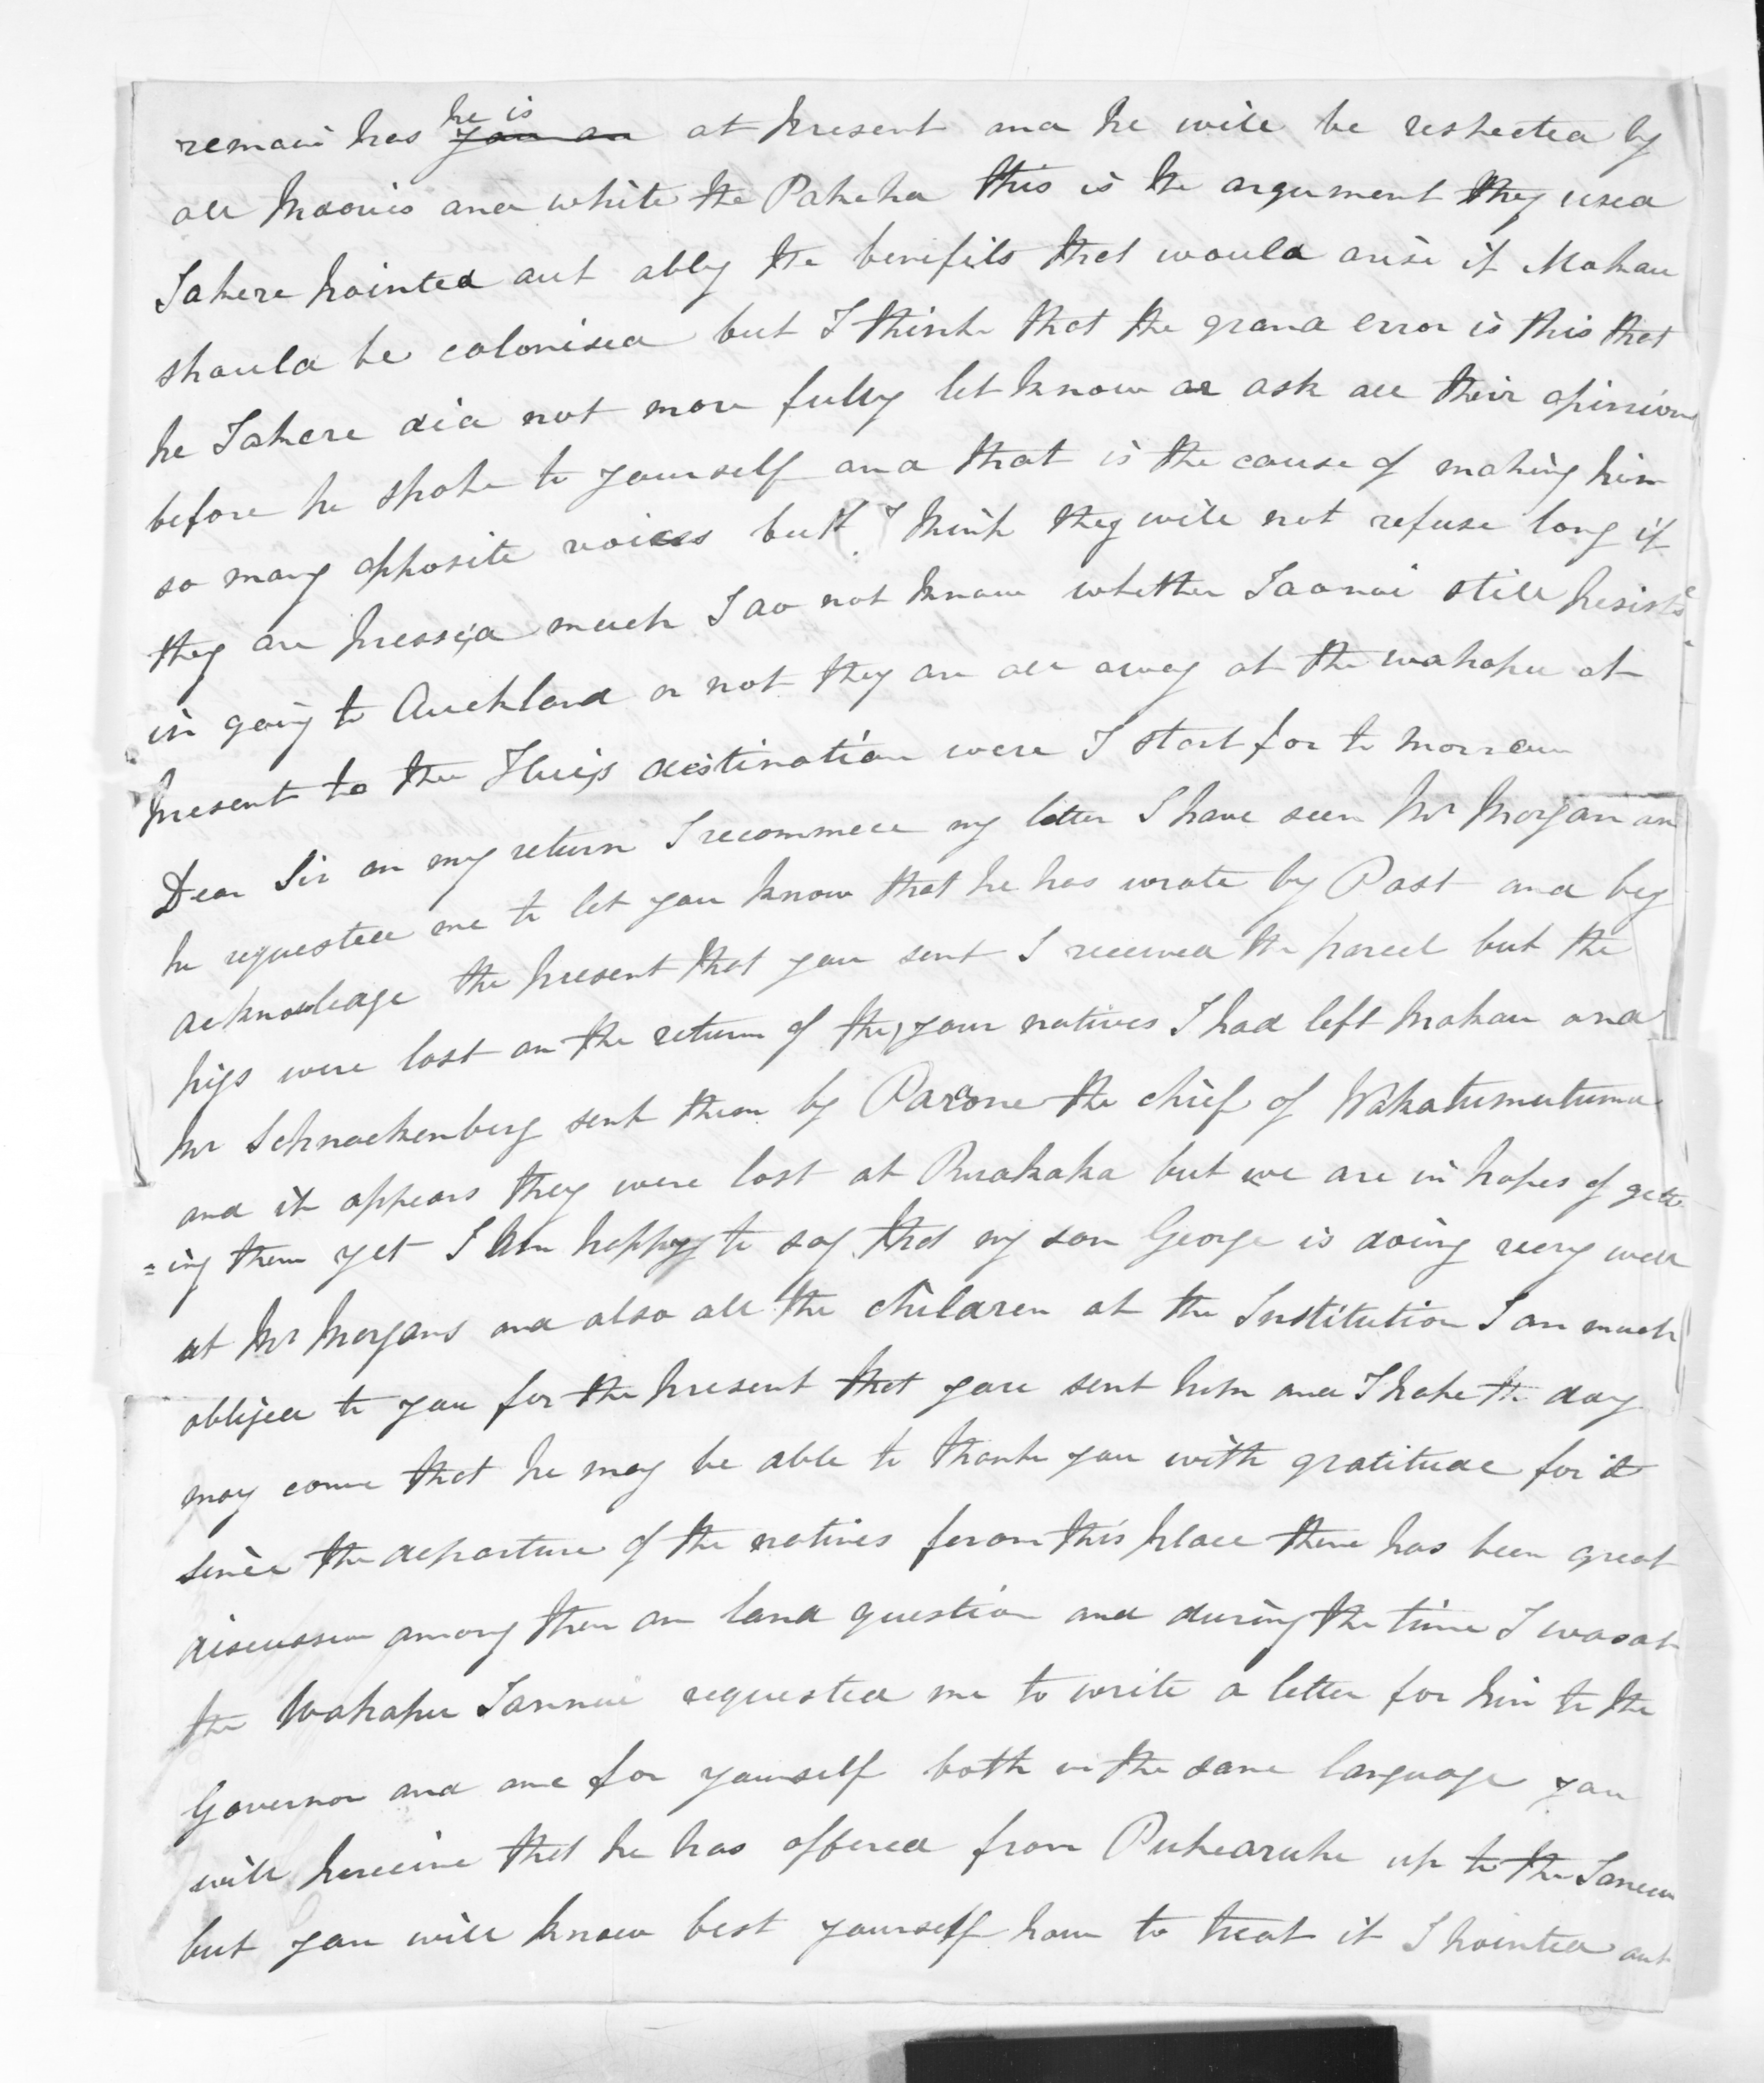 remain has he is you are at present and he will be respected by
all Maoris and white the Pakeha this is the argument they used
Takere pointed out ably the benifits that would arise if Mokau
should be colonised but I think that the grand error is this that
he Takere did not more fully let know or ask all their opinions
before he spoke to yourself and that is the cause of making him
so many opposite voices but I think they will not refuse long if
they are pressed much I do not know whether Taonui still persists
in going to Auckland or not they are all away at the wahapu at
present to the destination were I start for to morrow
Dear Sir on my return I recommece my letter I have seen Mr Morgan an
he requested me to let you know that he has wrote by Post and beg
acknowledge the present that you sent I received the parcel but the
pigs were lost on the return of the your natives I had left Mokau and
Mr Schnackenberg sent them by Parone the chief of Wakatumutumu
and it appears they were lost at Purakaka but we are in hopes of gett
=ing them yet I am happy to say that my son George is doing very well
at Mr Morgans and also all the children at the Institution I am much
obliged to you for the present that you sent him and I hope the day
may come that he may be able to thank you with gratitude for it
since the departure of the natives from this place there has been great
discussion among them on land question and during the time I was at
the Wahapu Taonui requested me to write a letter for him to the
Governor and one for yourself both in the same language you
will perceive that he has offered from Pukearuhe up to the
but you will know best yourself how to treat it I pointed out